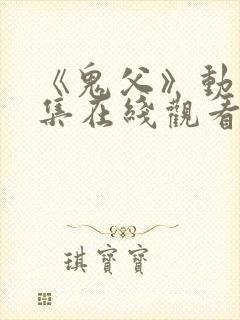 《鬼父》動
集在綫觀看
琪寶寶